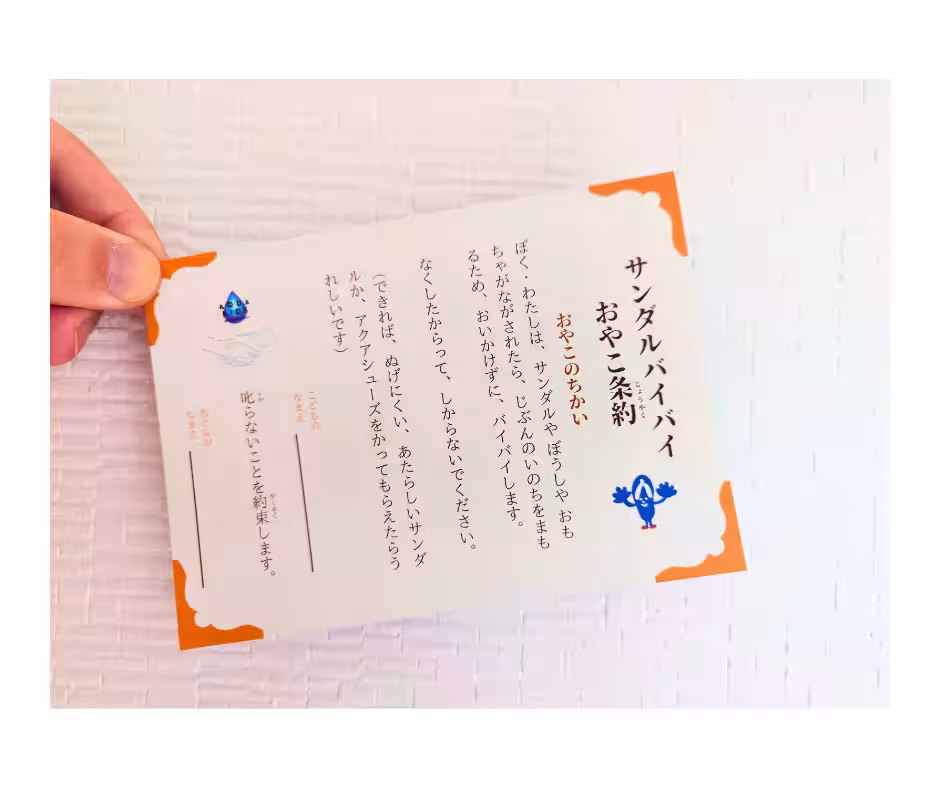 サンダルバイバイ
おやこ条約
じょうやく
おやこのちかい
ぼく・わたしは、サンダルや ぼうしや おも
ちゃがながされたら、じぶんのいのちをまも
るため、おいかけずに、バイバイします。
なくしたからって、しからないでください。
(できれば、ぬげにくい、あたらしいサンダ
ルか、アクアシューズをかってもらえたらう
れしいです)
こどもの
なまえ
叱らないことを約束します。
しか
やくそく
なまえ